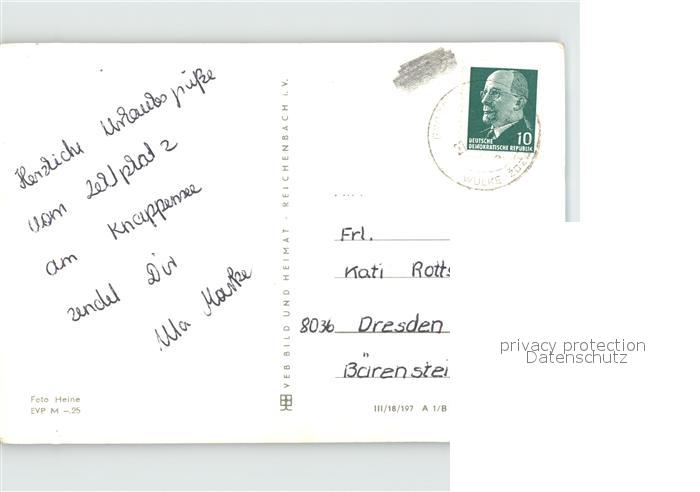 Herzliche Urlaubsgrüße
vom Zeltplatz
am Knappensee
sendet Dir
Ulla Marke
Foto Heine
EVP M –.25
VEB BILD UND HEIMAT · REICHENBACH I. V.
III/18/197 A 1/B
DEUTSCHE
DEMOKRATISCHE REPUBLIK
10
Frl.
Kati Rotts
8036 Dresden
Bärenstei
privacy protection
Datenschutz